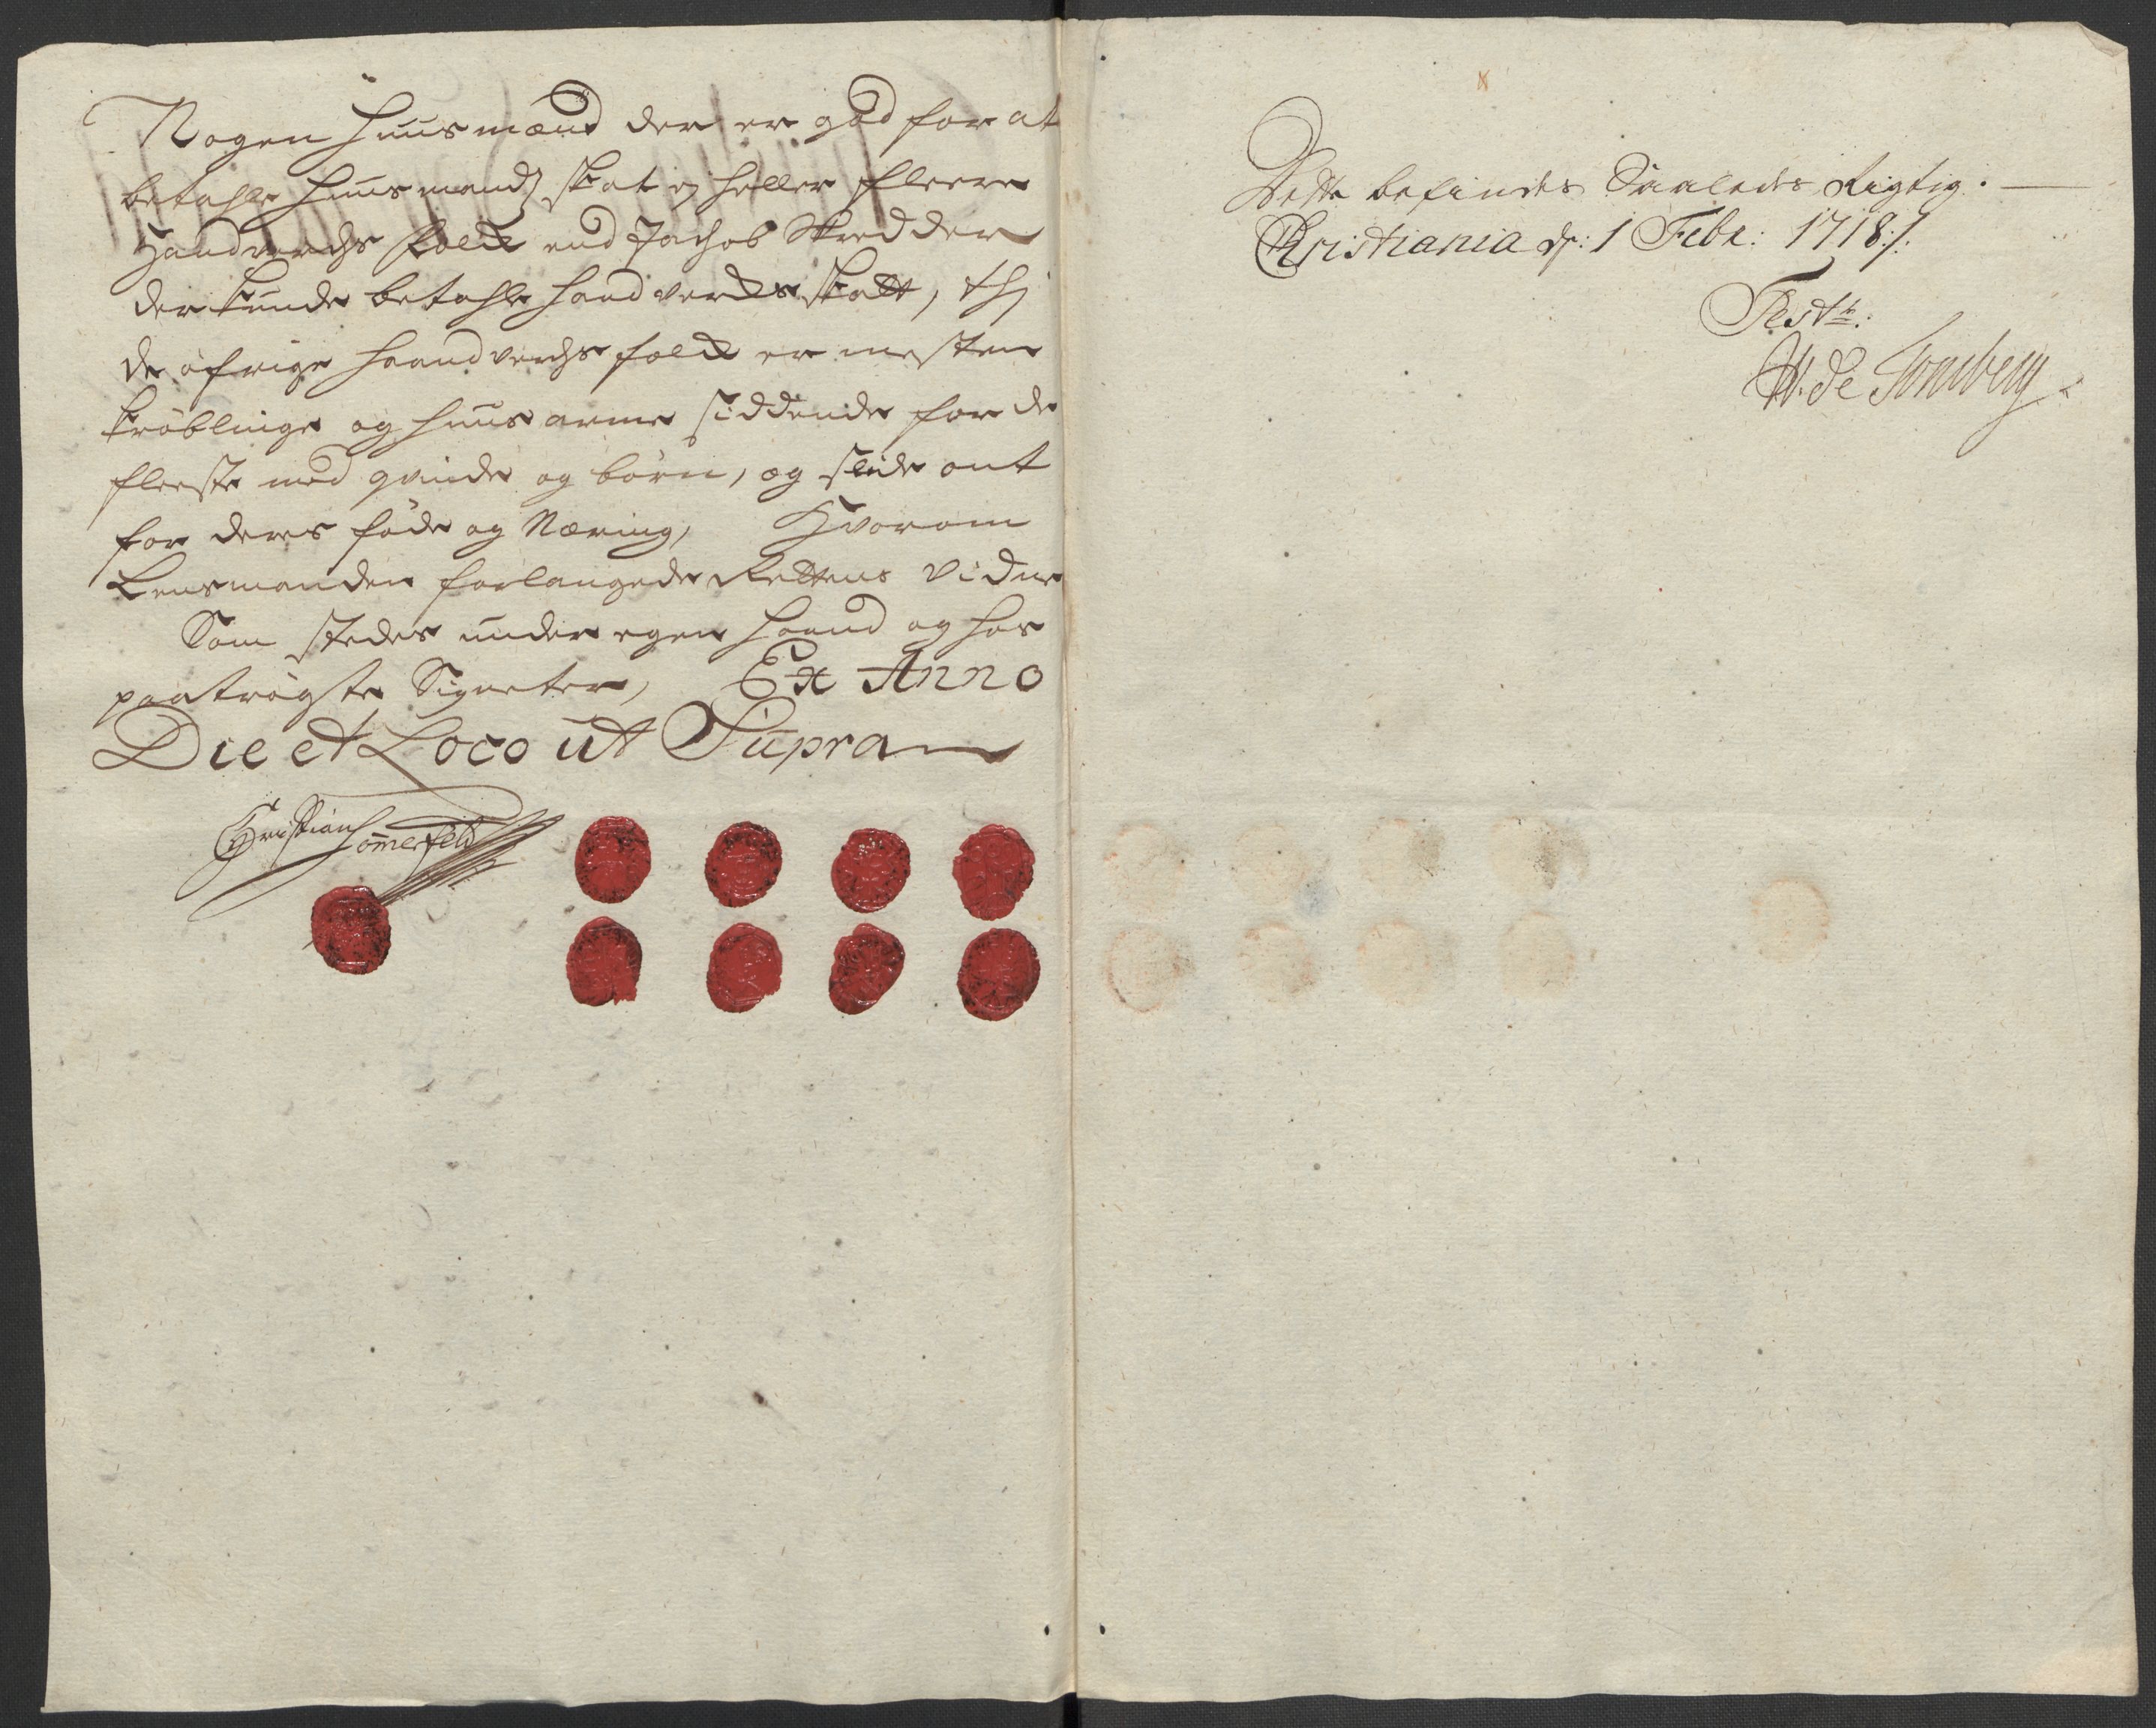 Nogen Huusmænd der er god for at
betahle Huusmands skat ej heller fleere
Handverchs folck end Jachob Skredder
der kunde betahle Handverks skatt, thj
de øfrige Haandverchs folck er mesten
krøblinge og Huus arme siddende for de
fleeste med qvinde og børn, og slide ont
for deres føde og Næring, Hvorom
Lensmanden forlangede Rettens vidne
Som stedes under egen Haand og hos
paatrøgte Signeter, Ex Anno
Die et Loco ut Supra
Christian Somerfeld
Dette befindes Saaledes Rigtig.
Christiania d: 1 Febr: 1718 /.
Test:
W. de Tonsberg